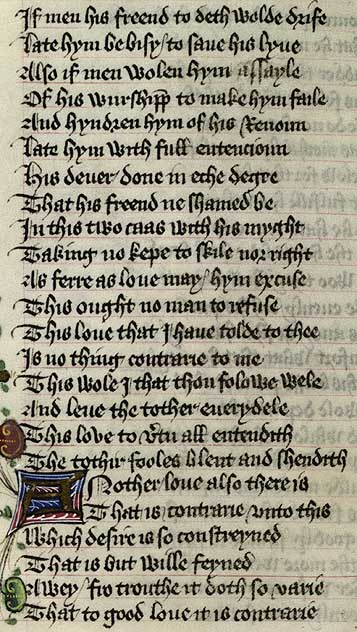 If men his freend to deth wolde drife
Late hym be bisy / to saue his lyue
Also if men wolen hym assayle
Of his wurshipp to make hym faile
And hyndren hym of his Renoun
Late hym with full entencioun
His deuer done in eche degre
That his freend ne shamed be
In this two caas with his myght
Taking no kepe to skile nor right
As ferre as loue may / hym excuse
This ought no man to refuse
This loue that I haue tolde to thee
Is no thing contrarie to me
This wole I that thou folowe wele
And leue the tother euerydele
This loue to vtu all entendith
The tothir fooles blent and shendith
A Nother loue also there is
That is contrarie vnto this
Which desire is so constreyned
That is but wille feyned
Awey / fro trouthe it doth so varie
That to good loue it is contrarie